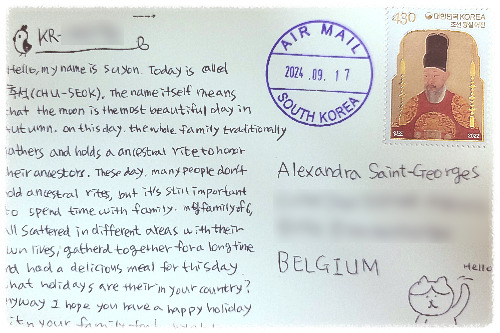 KR-
Hello, my name is suyon. Today is called
추석(CHU-SEOK). The name itself means
that the moon is the most beautiful day in
autumn. on this day. the whole family traditionally
gathers and holds a ancestral rite to honor
their ancestors. These day. many people don't
hold ancestral rites, but it's still important
to spend time with family. my family of 6,
all scattered in different areas with their
own lives, gatherd together for a long time
and had a delicious meal for this day
what holidays are their in your country?
anyway I hope you have a happy holiday
with your family
AIR MAIL
2024.09.17
SOUTH KOREA
430
대한민국 KOREA
2022
Alexandra Saint-Georges
BELGIUM
Hello